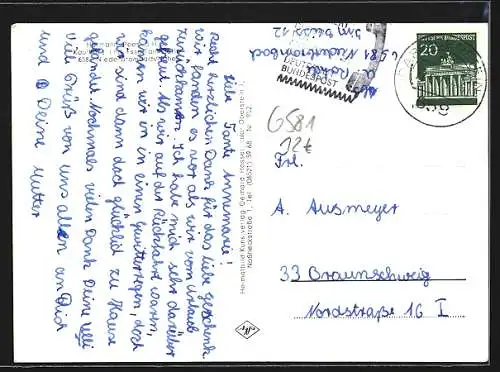 Liebe Tante Annemarie!
Recht herzlichen Dank für das liebe Geschenk
wir fanden es vor als wir vom Urlaub
zurückkamen. Ich habe mich sehr darüber
gefreut. Als wir auf der Rückfahrt waren,
kamen wir in einen Gewitterregen, doch
wir sind dann doch glücklich zu Hause
gelandet. Nochmals vielen Dank Deine Ulli
Viele Grüße von uns allen an Dich
und Deine Mutter
Abs.
6581 Niederbrombach
12
DEUTSCHE
BUNDESPOST
DEUTSCHE BUNDESPOST
20
6581
12€
Frl.
A. Ausmeyer
33 Braunschweig
Nordstraße 16 I